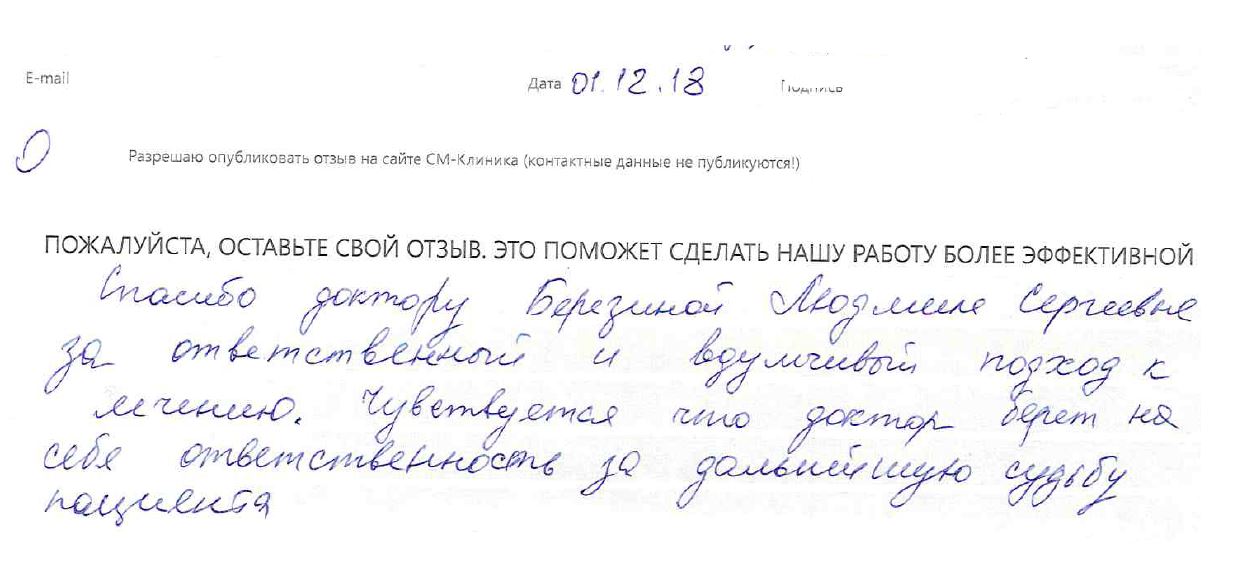 E-mail Дата 01.12.18 Подпись
Разрешаю опубликовать отзыв на сайте СМ-Клиника (контактные данные не публикуются!)
ПОЖАЛУЙСТА, ОСТАВЬТЕ СВОЙ ОТЗЫВ. ЭТО ПОМОЖЕТ СДЕЛАТЬ НАШУ РАБОТУ БОЛЕЕ ЭФФЕКТИВНОЙ
Спасибо доктору Березиной Людмиле Сергеевне
за ответственный и вдумчивый подход к
лечению. Чувствуется что доктор берет на
себя ответственность за дальнейшую судьбу
пациента